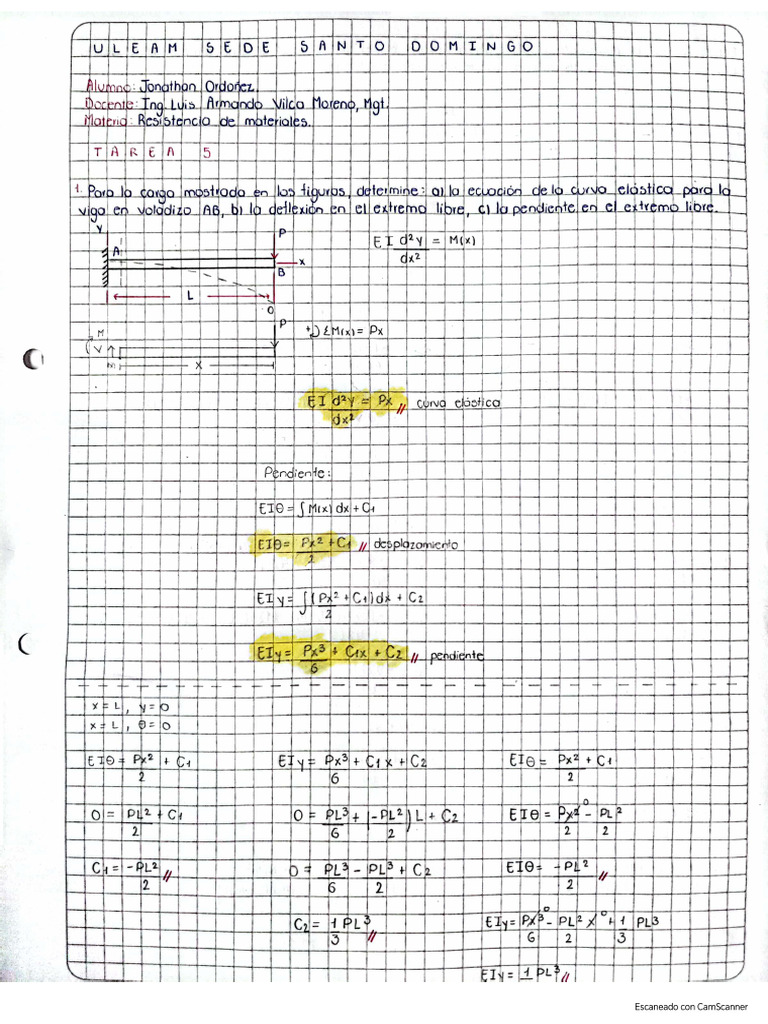 ULEAM SEDE SANTO DOMINGO
Alumno: Jonathan Ordoñez.
Docente: Ing. Luis Armando Vilca Moreno, Mgt.
Materia: Resistencia de materiales.
TAREA 5
1. Para la carga mostrada en las figuras, determine: a) la ecuación de la curva elástica para la
viga en voladizo AB, b) la deflexión en el extremo libre, c) la pendiente en el extremo libre.
Y
P
A
x
B
L
O
EI d²y/dx² = M(x)
M
V
P
M
X
+) ΣM(x) = Px
EI d²y/dx² = Px // curva elástica
Pendiente:
EIθ = ∫M(x) dx + C1
EIθ = Px²/2 + C1 // desplazamiento
EIy = ∫(Px²/2 + C1) dx + C2
EIy = Px³/6 + C1x + C2 // pendiente
x = L, y = 0
x = L, θ = 0
EIθ = Px²/2 + C1
0 = PL²/2 + C1
C1 = -PL²/2 //
EIy = Px³/6 + C1x + C2
0 = PL³/6 + (-PL²/2) L + C2
0 = PL³/6 - PL³/2 + C2
C2 = 1/3 PL³ //
EIθ = Px²/2 + C1
EIθ = Px²/2 0 - PL²/2
EIθ = -PL²/2 //
EIy = Px³/6 0 - PL²/2 x 0 + 1/3 PL³
EIy = 1 PL³ //
Escaneado con CamScanner